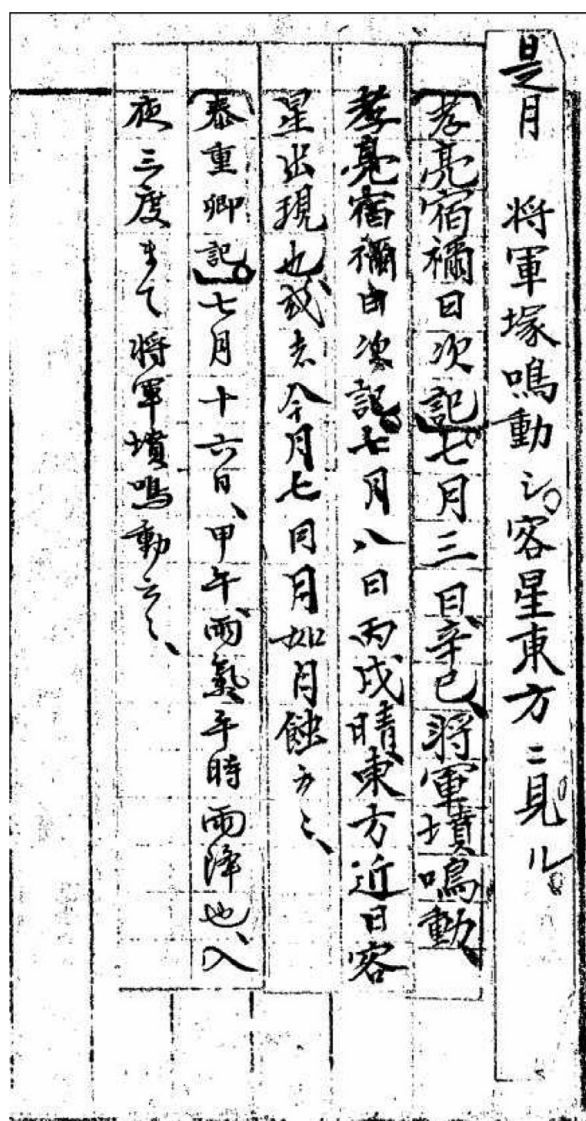 是月 将軍塚鳴動シ。客星東方ニ見ル。
〔孝亮宿禰日次記〕七月三日、辛巳、将軍墳鳴動、
孝亮宿禰日次記、七月八日丙戌晴、東方近日客
星出現也、或志今月七同月如月蝕云々、
〔泰重卿記〕。七月十六日、甲午、雨氣、午時雨降也、入
夜三度まて将軍墳鳴動云々、